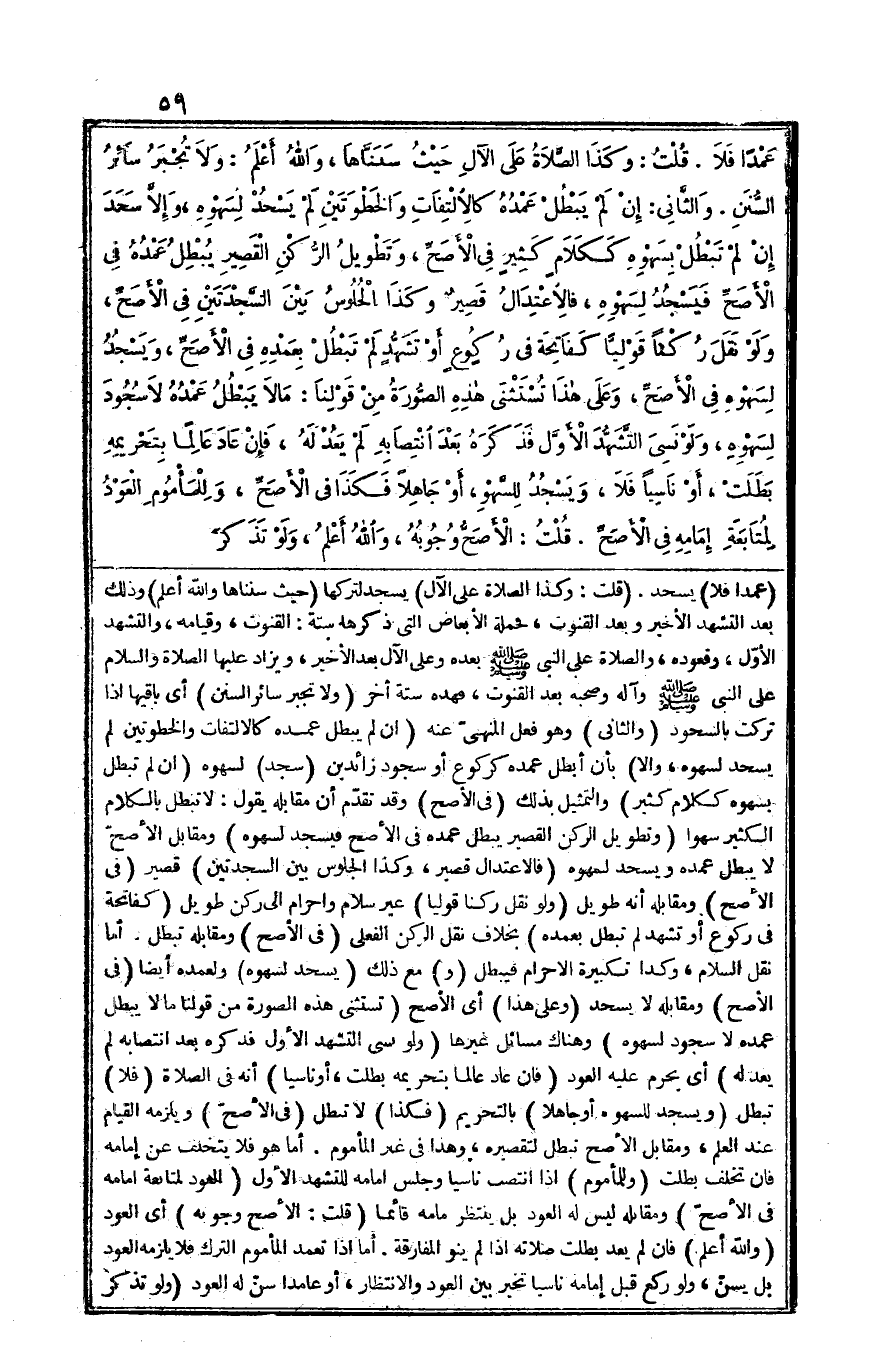 ٥٩
عَمْدًا فَلَا . قُلْتُ : وَكَذَا الصَّلَاةُ عَلَى الْآلِ حَيْثُ سَنَنَّاهَا ، وَاللهُ أَعْلَمُ : وَلَا تُجْبَرُ سَائِرُ
السُّنَنِ . وَالثَّانِى : إِنْ لَمْ يَبْطُلْ عَمْدُهُ كَالِالْتِفَاتِ وَالْخَطْوَتَيْنِ لَمْ يَسْجُدْ لِسَهْوِهِ ، وَإِلَّا سَجَدَ
إِنْ لَمْ تَبْطُلْ بِسَهْوِهِ كَكَلَامٍ كَثِيرٍ فِى الْأَصَحِّ ، وَتَطْوِيلُ الرُّكْنِ الْقَصِيرِ يُبْطِلُ عَمْدُهُ فِى
الْأَصَحِّ فَيَسْجُدُ لِسَهْوِهِ ، فَالِاعْتِدَالُ قَصِيرٌ وَكَذَا الْجُلُوسُ بَيْنَ السَّجْدَتَيْنِ فِى الْأَصَحِّ ،
وَلَوْ نَقَلَ رُكْنًا قَوْلِيًّا كَفَاتِحَة فى رُكُوعٍ أَوْ تَشَهُّدٍ لَمْ تَبْطُلْ بِعَمْدِهِ فِى الْأَصَحِّ ، وَيَسْجُدُ
لِسَهْوِهِ فِى الْأَصَحِّ ، وَعَلَى هٰذَا تُسْتَثْنَى هٰذِهِ الصُّورَةُ مِنْ قَوْلِنَا : مَالَا يَبْطُلُ عَمْدُهُ لَا سُجُودَ
لِسَهْوِهِ ، وَلَوْ نَسِىَ التَّشَهُّدَ الْأَوَّلَ فَذَكَرَهُ بَعْدَ انْتِصَابِهِ لَمْ يَعُدْ لَهُ ، فَإِنْ عَادَ عَالِمًا بِتَحْرِيمِهِ
بَطَلَتْ ، أَوْ نَاسِياً فَلَا ، وَيَسْجُدُ لِلسَّهْوِ ، أَوْ جَاهِلًا فَكَذَا فى الْأَصَحِّ ، وَلِلْمَأْمُومِ الْعَوْدُ
لِمُتَابَعَةِ إِمَامِهِ فِى الْأَصَحِّ . قُلْتُ : الْأَصَحُّ وُجُوبُهُ ، وَاللهُ أَعْلَمُ ، وَلَوْ تَذَكَّرَ
(عمدا فلا) يسجد . (قلت : وكذا الصلاة على الآل) يسجد لتركها (حيث سنناها والله أعلم) وذلك
بعد التشهد الأخير وبعد القنوت ، فجملة الأبعاض التى ذكرها ستة : القنوت ، وقيامه ، والتشهد
الأوّل ، وقعوده ، والصلاة على النبى ﷺ بعده وعلى الآل بعد الأخير ، ويزاد عليها الصلاة والسلام
على النبى ﷺ وآله وصحبه بعد القنوت ، فهذه ستة أخر (ولا تجبر سائر السنن) أى باقيها اذا
تركت بالسجود (والثانى) وهو فعل المنهىّ عنه (ان لم يبطل عمده كالالتفات والخطوتين لم
يسجد لسهوه ، والا) بأن أبطل عمده كركوع أو سجود زائدين (سجد) لسهوه (ان لم تبطل
بسهوه ككلام كثير) والتمثيل بذلك (فى الأصح) وقد تقدّم أن مقابله يقول : لا تبطل بالكلام
الكثير سهوا (وتطويل الركن القصير يبطل عمده فى الأصح فيسجد لسهوه) ومقابل الأصحّ
لا يبطل عمده ويسجد لسهوه (فالاعتدال قصير ، وكذا الجلوس بين السجدتين) قصير (فى
الأصح) ومقابله أنه طويل (ولو نقل ركنا قوليا) غير سلام واحرام الى ركن طويل (كفاتحة
فى ركوع أو تشهد لم تبطل بعمده) بخلاف نقل الركن الفعلى (فى الأصح) ومقابله تبطل . أما
نقل السلام ، وكذا تكبيرة الاحرام فيبطل (و) مع ذلك (يسجد لسهوه) ولعمده أيضا (فى
الأصح) ومقابله لا يسجد (وعلى هذا) أى الأصح (تستثنى هذه الصورة من قولنا ما لا يبطل
عمده لا سجود لسهوه) وهناك مسائل غيرها (ولو نسى التشهد الأول فذكره بعد انتصابه لم
يعد له) أى يحرم عليه العود (فان عاد عالما بتحريمه بطلت ، أو ناسيا) أنه فى الصلاة (فلا)
تبطل (ويسجد للسهو أوجاهلا) بالتحريم (فكذا) لا تبطل (فى الأصحّ) ويلزمه القيام
عند العلم ، ومقابل الأصح تبطل لتقصيره ، وهذا فى غير المأموم . أما هو فلا يتخلف عن إمامه
فان تخلف بطلت (وللمأموم) اذا انتصب ناسيا وجلس امامه للتشهد الأول (العود لمتابعة امامه
فى الأصحّ) ومقابله ليس له العود بل ينتظر مامه قائما (قلت : الأصح وجوبه) أى العود
(والله أعلم) فان لم يعد بطلت صلاته اذا لم ينو المفارقة . أما اذا تعمد المأموم الترك فلا يلزمه العود
بل يسنّ ، ولو ركع قبل إمامه ناسيا تخير بين العود والانتظار ، أو عامدا سنّ له العود (ولو تذكر